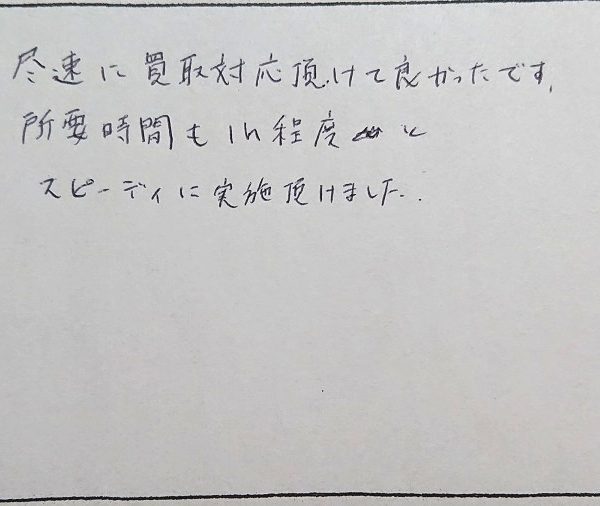 尽速に買取対応頂けて良かったです。
所要時間も1h程度と
スピーディに実施頂けました。